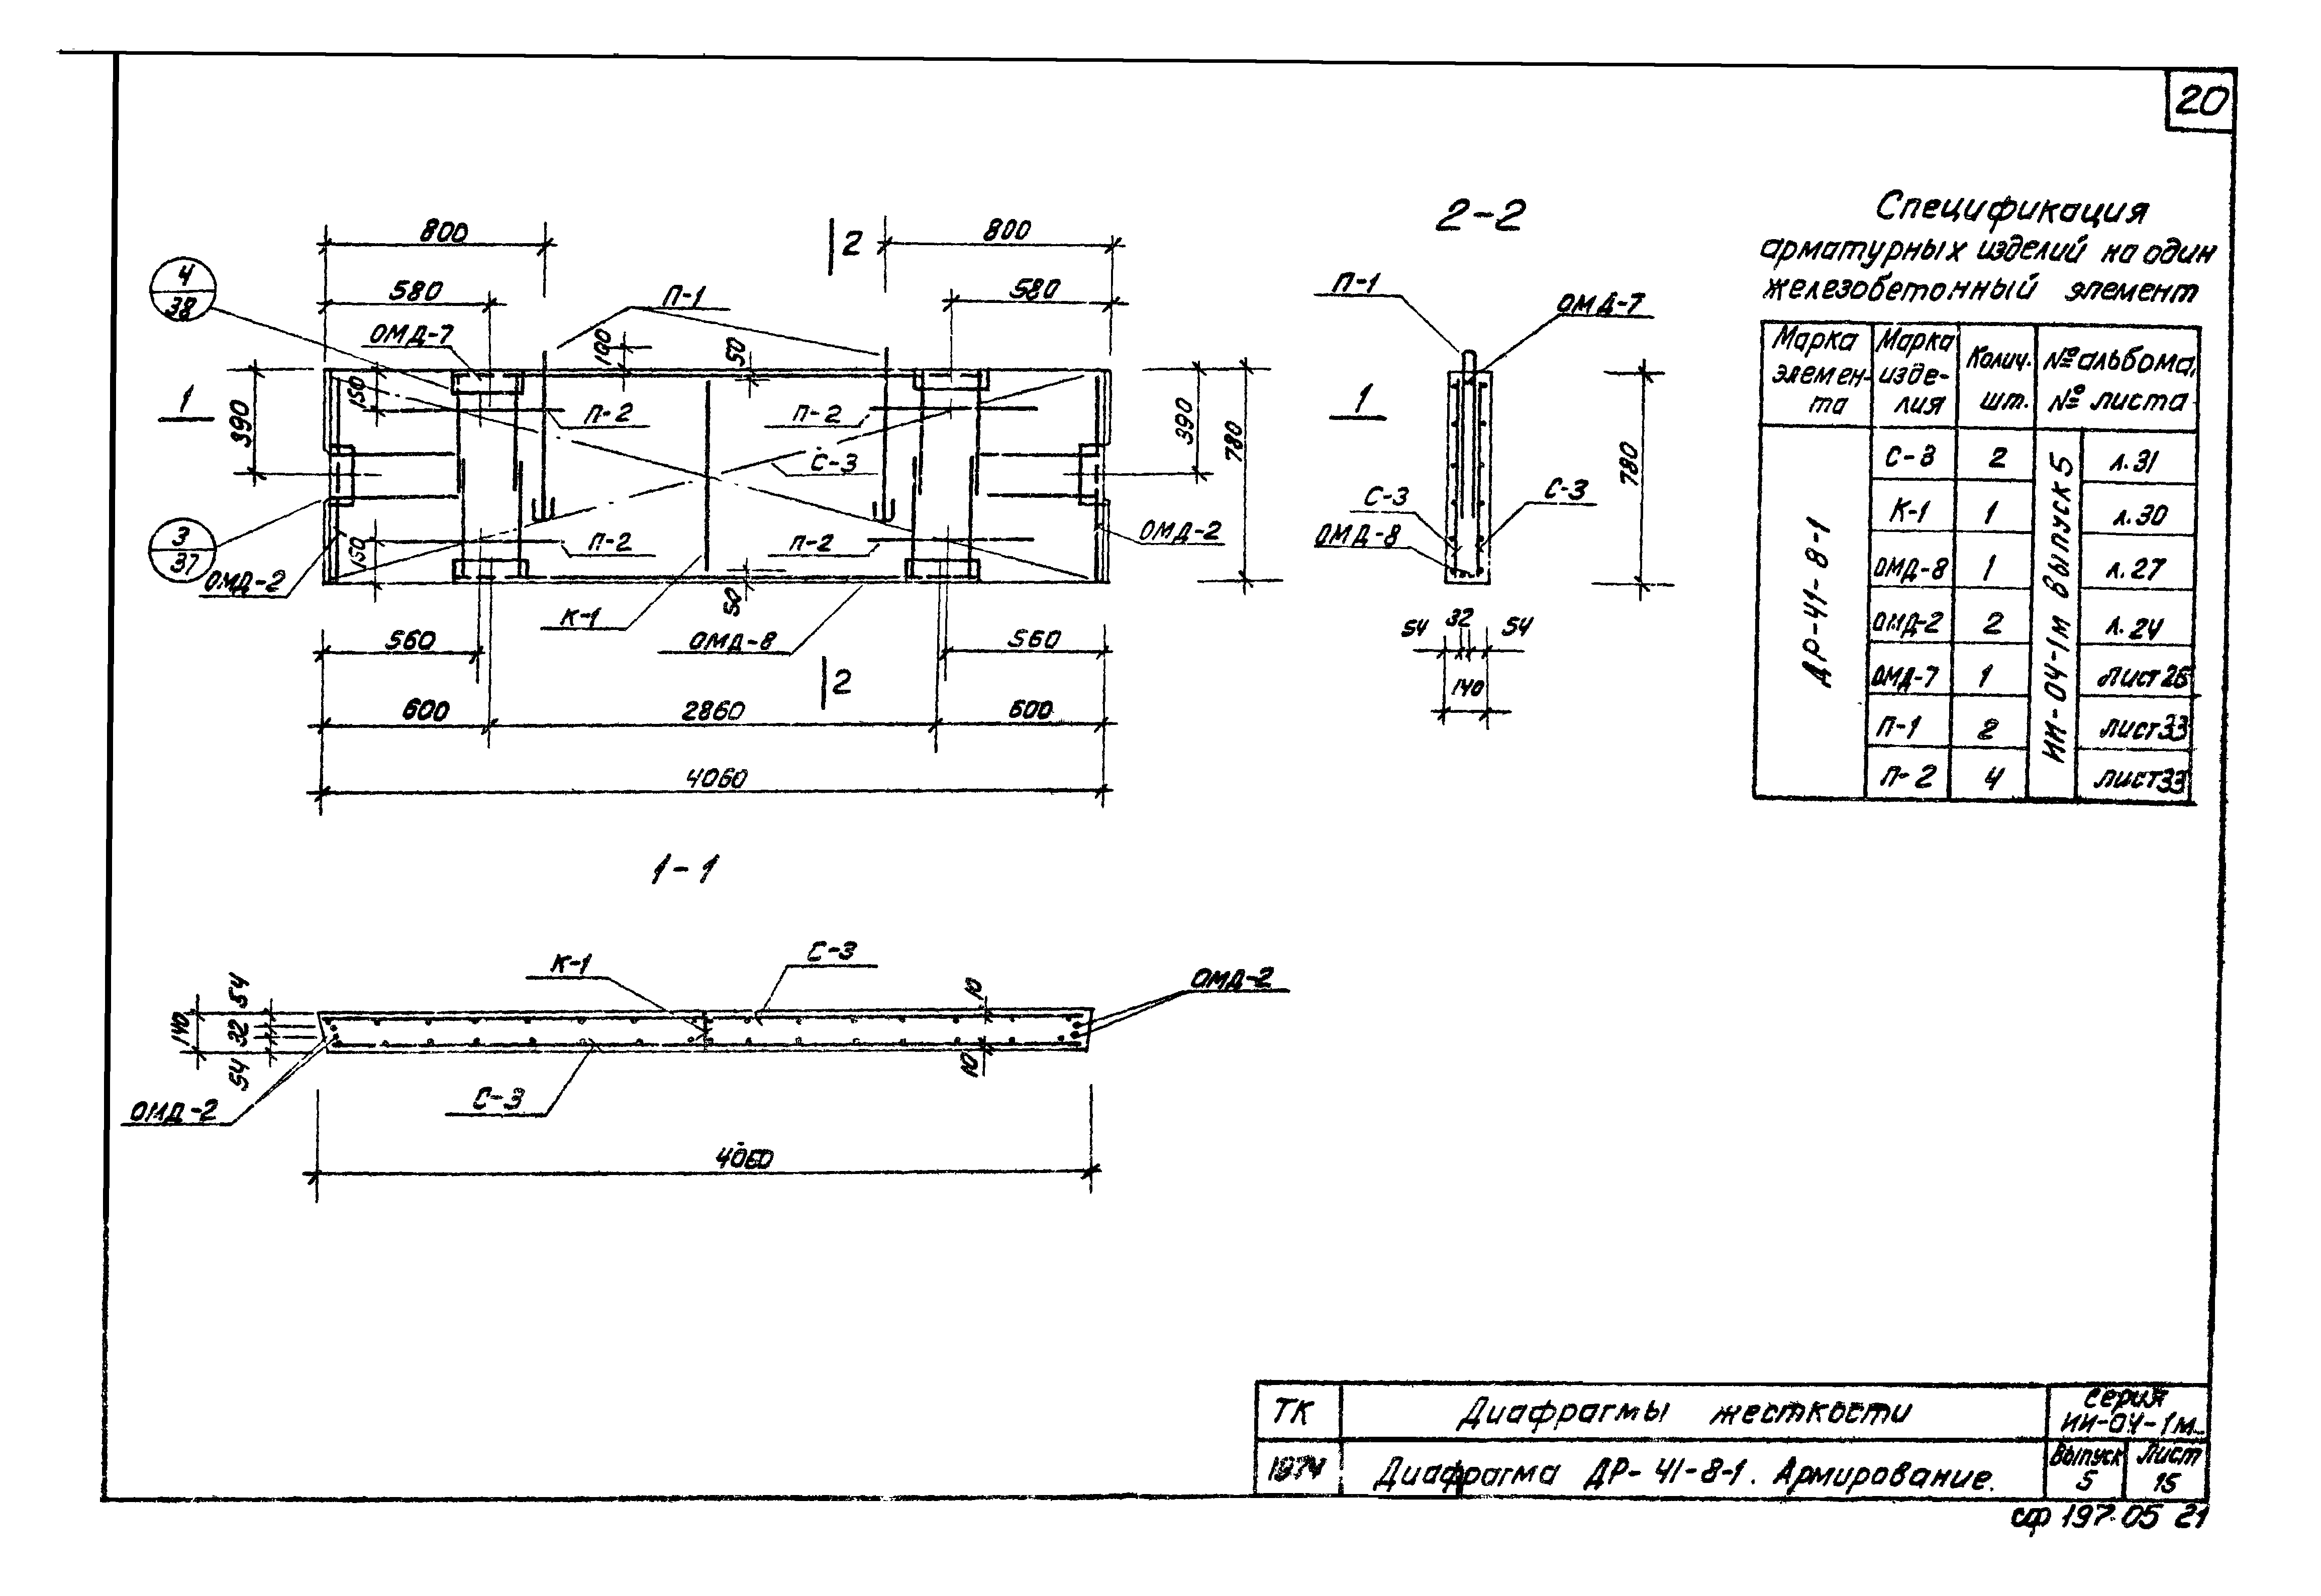 20
800
2
800
580
П-1
580
4
38
ОМД-7
100
50
150
1
390
П-2
П-2
С-3
390
780
3
37
ОМД-2
150
П-2
П-2
ОМД-2
50
К-1
ОМД-8
560
560
2
600
2860
600
4060
2-2
П-1
ОМД-7
1
С-3
С-3
ОМД-8
780
54 32 54
140
Спецификация
арматурных изделий на один
железобетонный элемент
Марка элемен-та
Марка изде-лия
Колич. шт.
№ альбома, № листа
ДР-41-8-1
ИИ-04-1м Выпуск 5
С-3 2 л.31
К-1 1 л.30
ОМД-8 1 л.27
ОМД-2 2 л.24
ОМД-7 1 Лист 26
П-1 2 Лист 33
П-2 4 Лист 33
1-1
К-1
С-3
ОМД-2
10
54
140
32
54
10
ОМД-2
С-3
4060
ТК
Диафрагмы жесткости
Серия
ИИ-04-1м
1974
Диафрагма ДР-41-8-1. Армирование.
Выпуск
5
Лист
15
сф 197-05 21